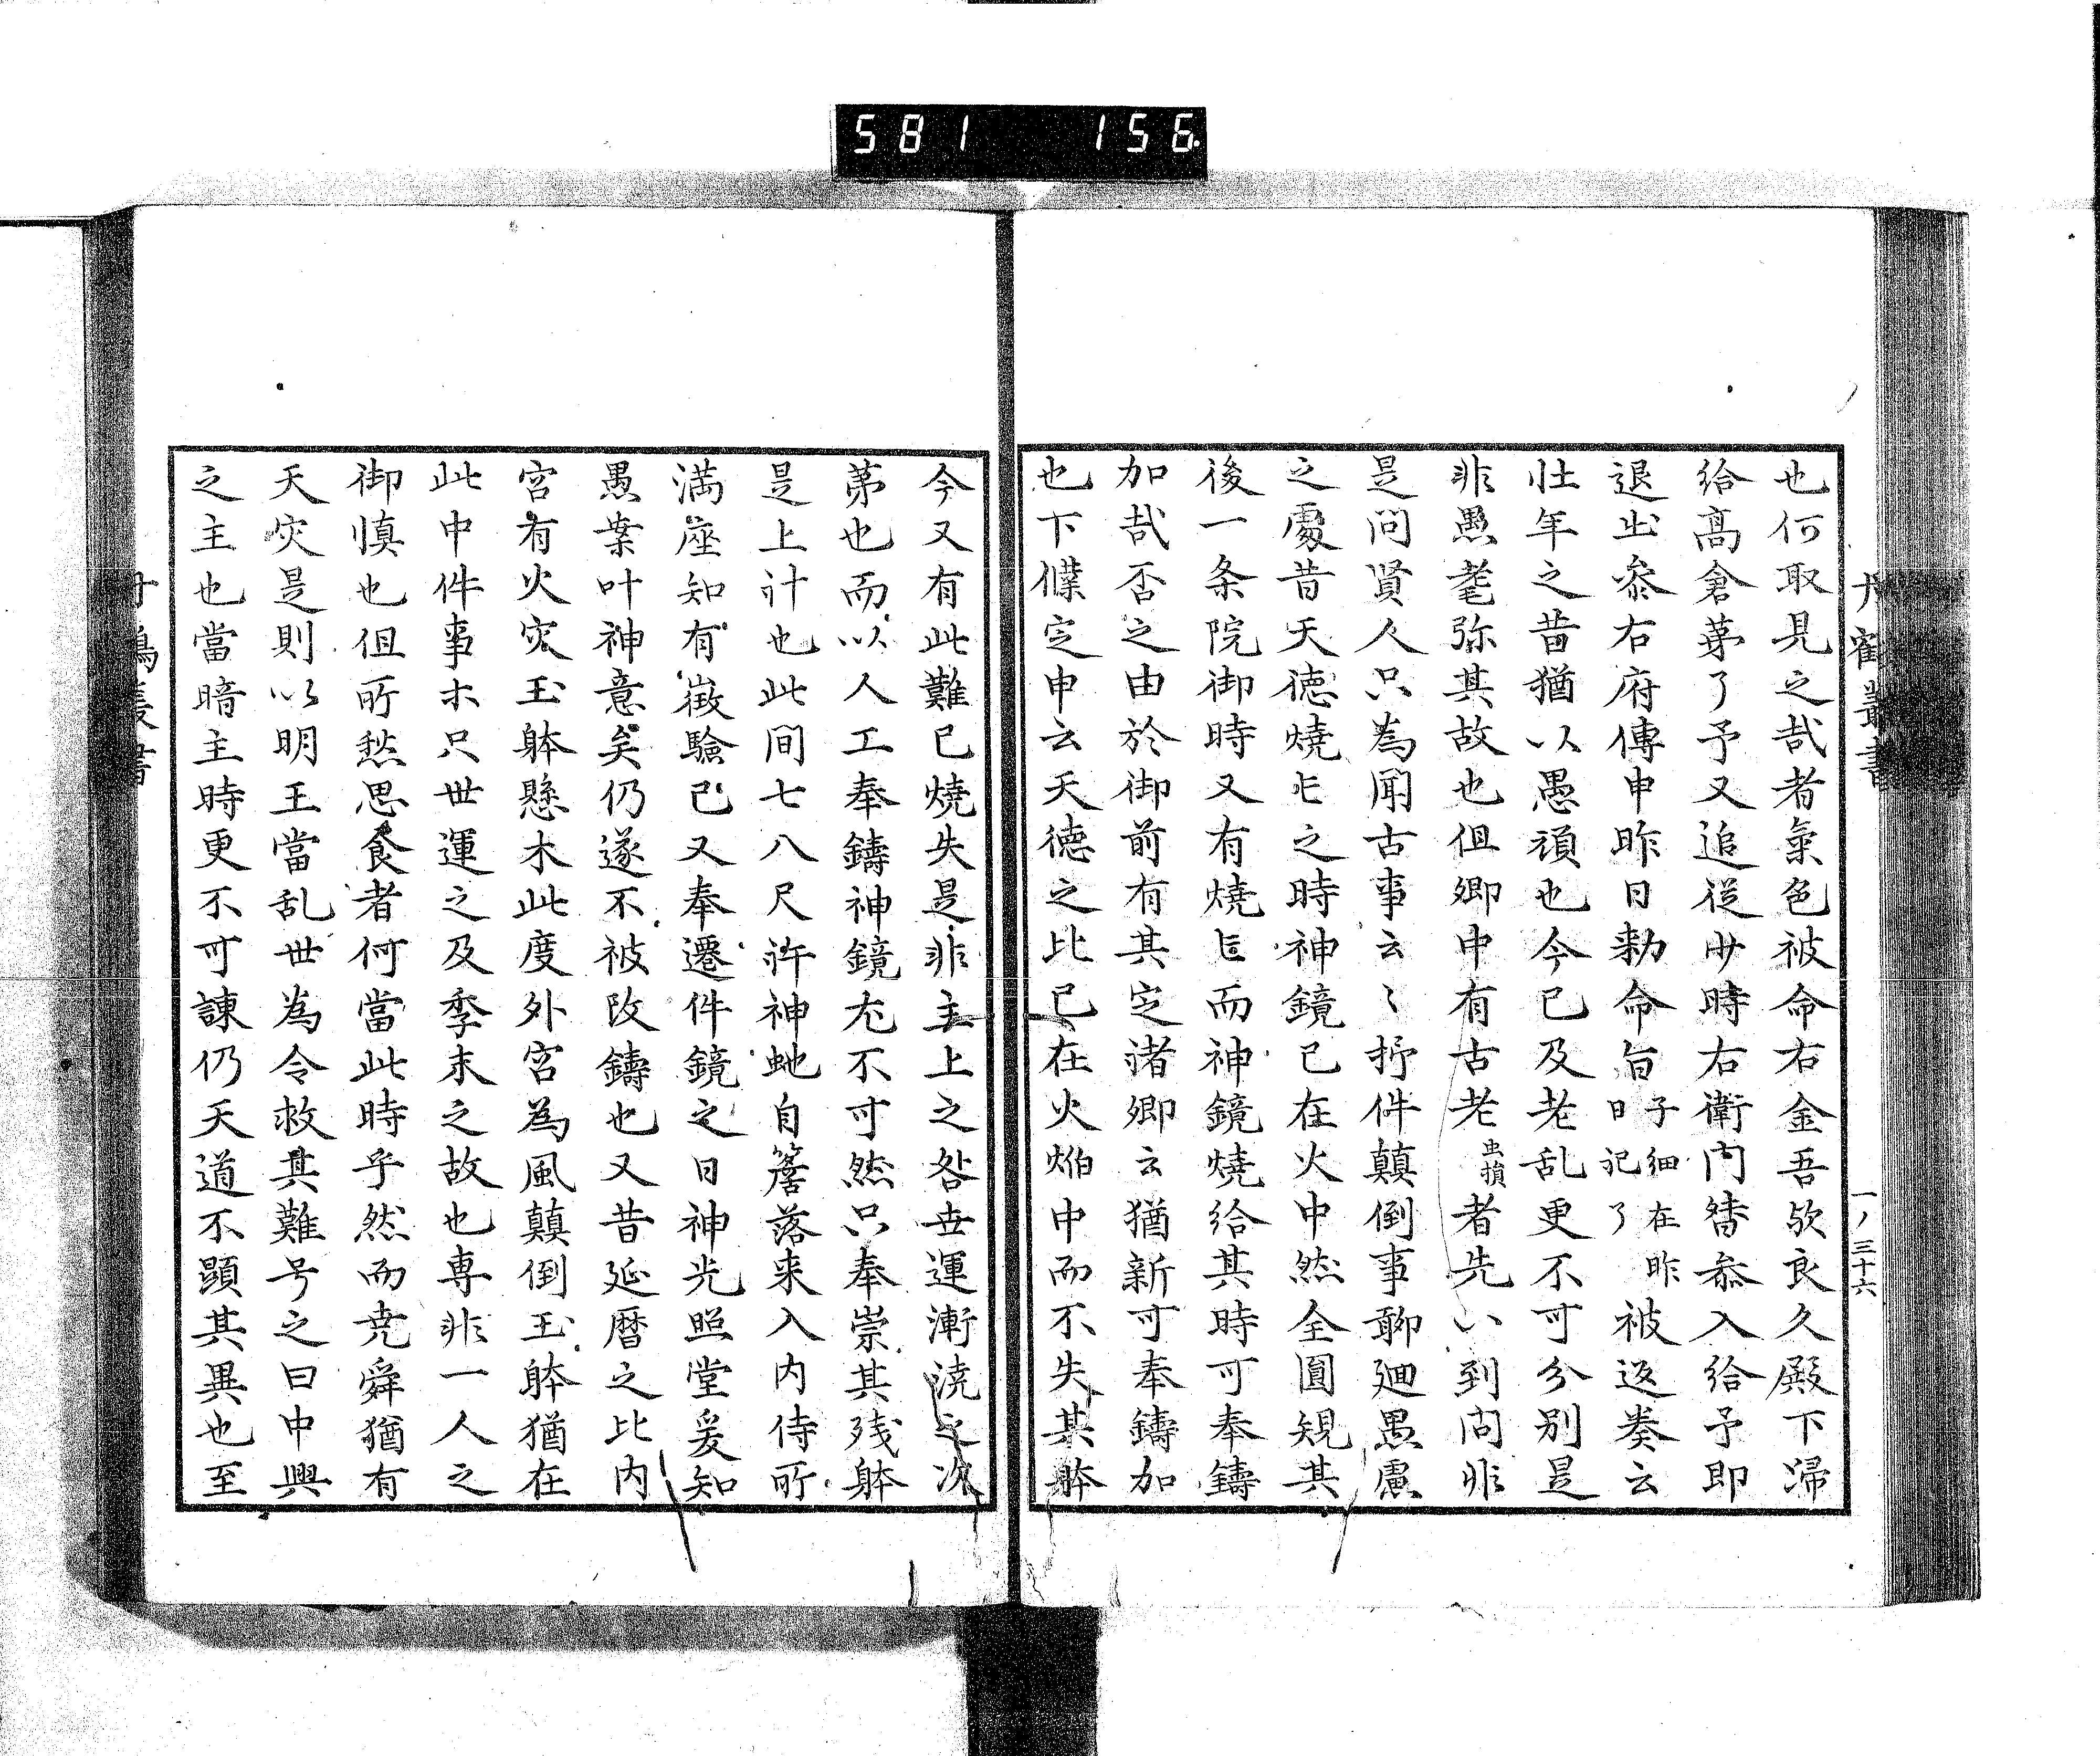 581 156
丹鶴叢書
一ノ三十六
也何取見之哉者氣色被命右金吾欤良久殿下帰
給高倉苐了予又追従少時右衛門督参入給予即
退出参右府傳申昨日勅命旨子細在昨日記了被返奏云
壮年之昔猶以愚頑也今已及老乱更不可分別是
非愚耄弥其故也但卿中有古老虫損者先以到問非
是問賢人只為聞古事云〻抒件顛倒事聊廻愚慮
之處昔天徳焼亡之時神鏡已在火中然全圓規其
後一条院御時又有焼亡而神鏡焼給其時可奉鑄
加哉否之由於御前有其定諸卿云猶新可奉鑄加
也下僕定申云天徳之比已在火焔中而不失其躰
今又有此難已焼失是非主上之咎世運漸澆之次
苐也而以人工奉鑄神鏡尤不可然只奉崇其残躰
是上計也此間七八尺許神虵自簷落来入内侍所
満座知有徴験已又奉遷件鏡之日神光照堂爰知
愚案叶神意矣仍遂不被改鑄也又昔延暦之比内
宮有火灾玉躰懸木此度外宮為風顛倒玉躰猶在
此中件事木只世運之及季末之故也専非一人之
御慎也但所愁思食者何當此時乎然而尭舜猶有
天灾是則以明王當乱世為令救其難号之曰中興
之主也當暗主時更不可諌仍天道不顕其異也至